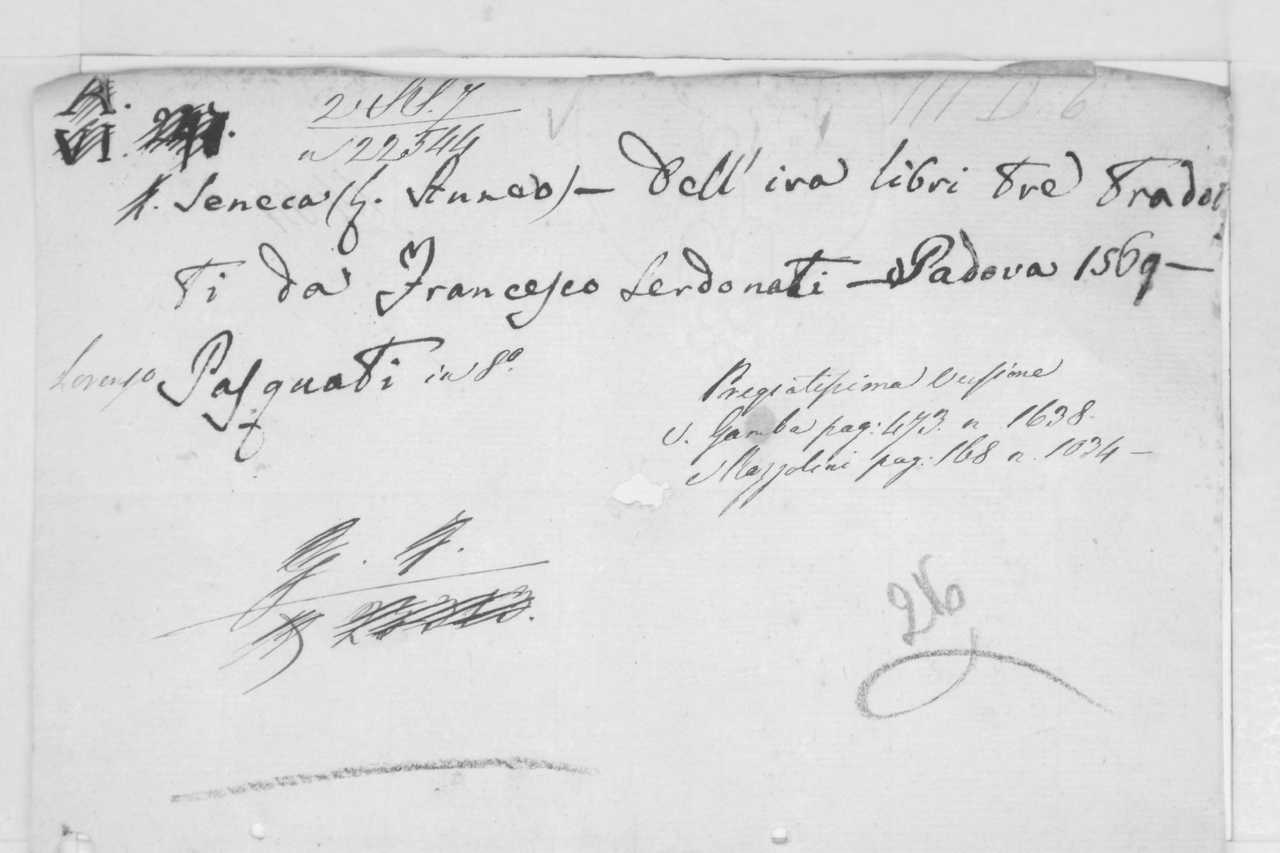 VI
n 22544
Seneca (L. Anneo) — Dell' ira libri tre tradot
ti da Francesco Serdonati — Padova 1569 —
Lorenzo Pasquati in 8º
Pregiatissima Versione
V. Gamba pag: 473. n. 1638.
Mazzolini pag. 168 n. 1034 —
III D. 6